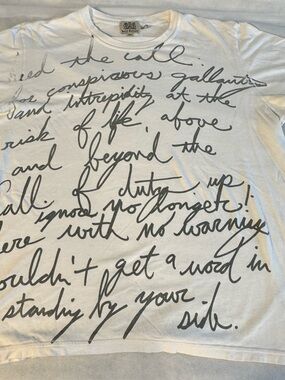 eed the call.
for conspicuous gallantry
and intrepidity at the
risk of life, above
and beyond the
call of duty up
ignore no longer!
ere with no warning
ouldn't get a word in
standing by your
side.